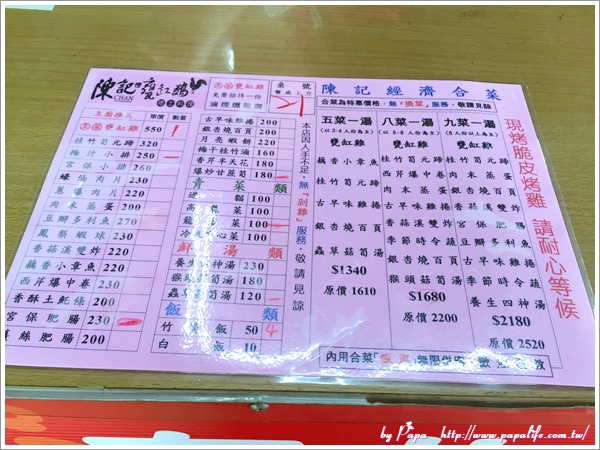 陳記甕缸雞
CHAN
鄉土料理
甕缸雞
免費招待一份
桌號
21
陳記經濟合菜
合菜為特惠價格,無「換菜」服務,敬請見諒
主廚推薦 單價 數量
甕缸雞 550
桂竹筍元蹄 320
梅汁小排 250
宮保小排 260
蠔油肉片 210
蔥爆肉片 210
豆瓣多利魚 270
鳳梨蝦球 230
香蒜溪蝦 210
藕香小章魚 230
西芹爆中卷 230
香酥土魠條 200
宮保肥腸 230
薑絲肥腸 200
古早味雞捲 200
銀杏燒百頁 200
月亮蝦餅 200
梅干桂竹滷 160
香芹羊天花 180
爆炒甘藍菜 100
青菜類
100
高麗菜 100
100
100
鮮湯類
養生四神湯 230
猴頭菇筍湯 150
蟲草菇筍湯 120
飯類
竹筒飯 50 4
白飯 10
本店因人手不足,無「剁雞」服務,敬請見諒
五菜一湯
(以3-4人份為主)
甕缸雞
桂竹筍元蹄
肉末蒸蛋
銀杏燒百頁
蟲草菇筍湯
$1340
原價 1610
八菜一湯
(以6-8人份為主)
甕缸雞
桂竹筍元蹄
西芹爆中卷
肉末蒸蛋
香蒜溪蝦
銀杏燒百頁
季節時令蔬
古早味雞捲
猴頭菇筍湯
$1680
原價 2200
九菜一湯
(8人份以上為主)
甕缸雞
桂竹筍元蹄
藕香小章魚
宮保肥腸
豆瓣多利魚
古早味雞捲
銀杏燒百頁
季節時令蔬
養生四神湯
$2180
原價 2520
內用合菜「飯、湯」無限供應,歡迎
現烤脆皮烤雞 請耐心等候
by Papa http://www.papalife.com.tw/